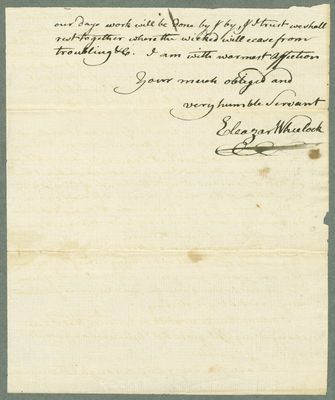 our days work will be done by & by, & I trust we shall
rest together where the wicked will cease from
troubling &c. I am with warmest affection
Your much obliged and
very humble Servant
Eleazar Wheelock